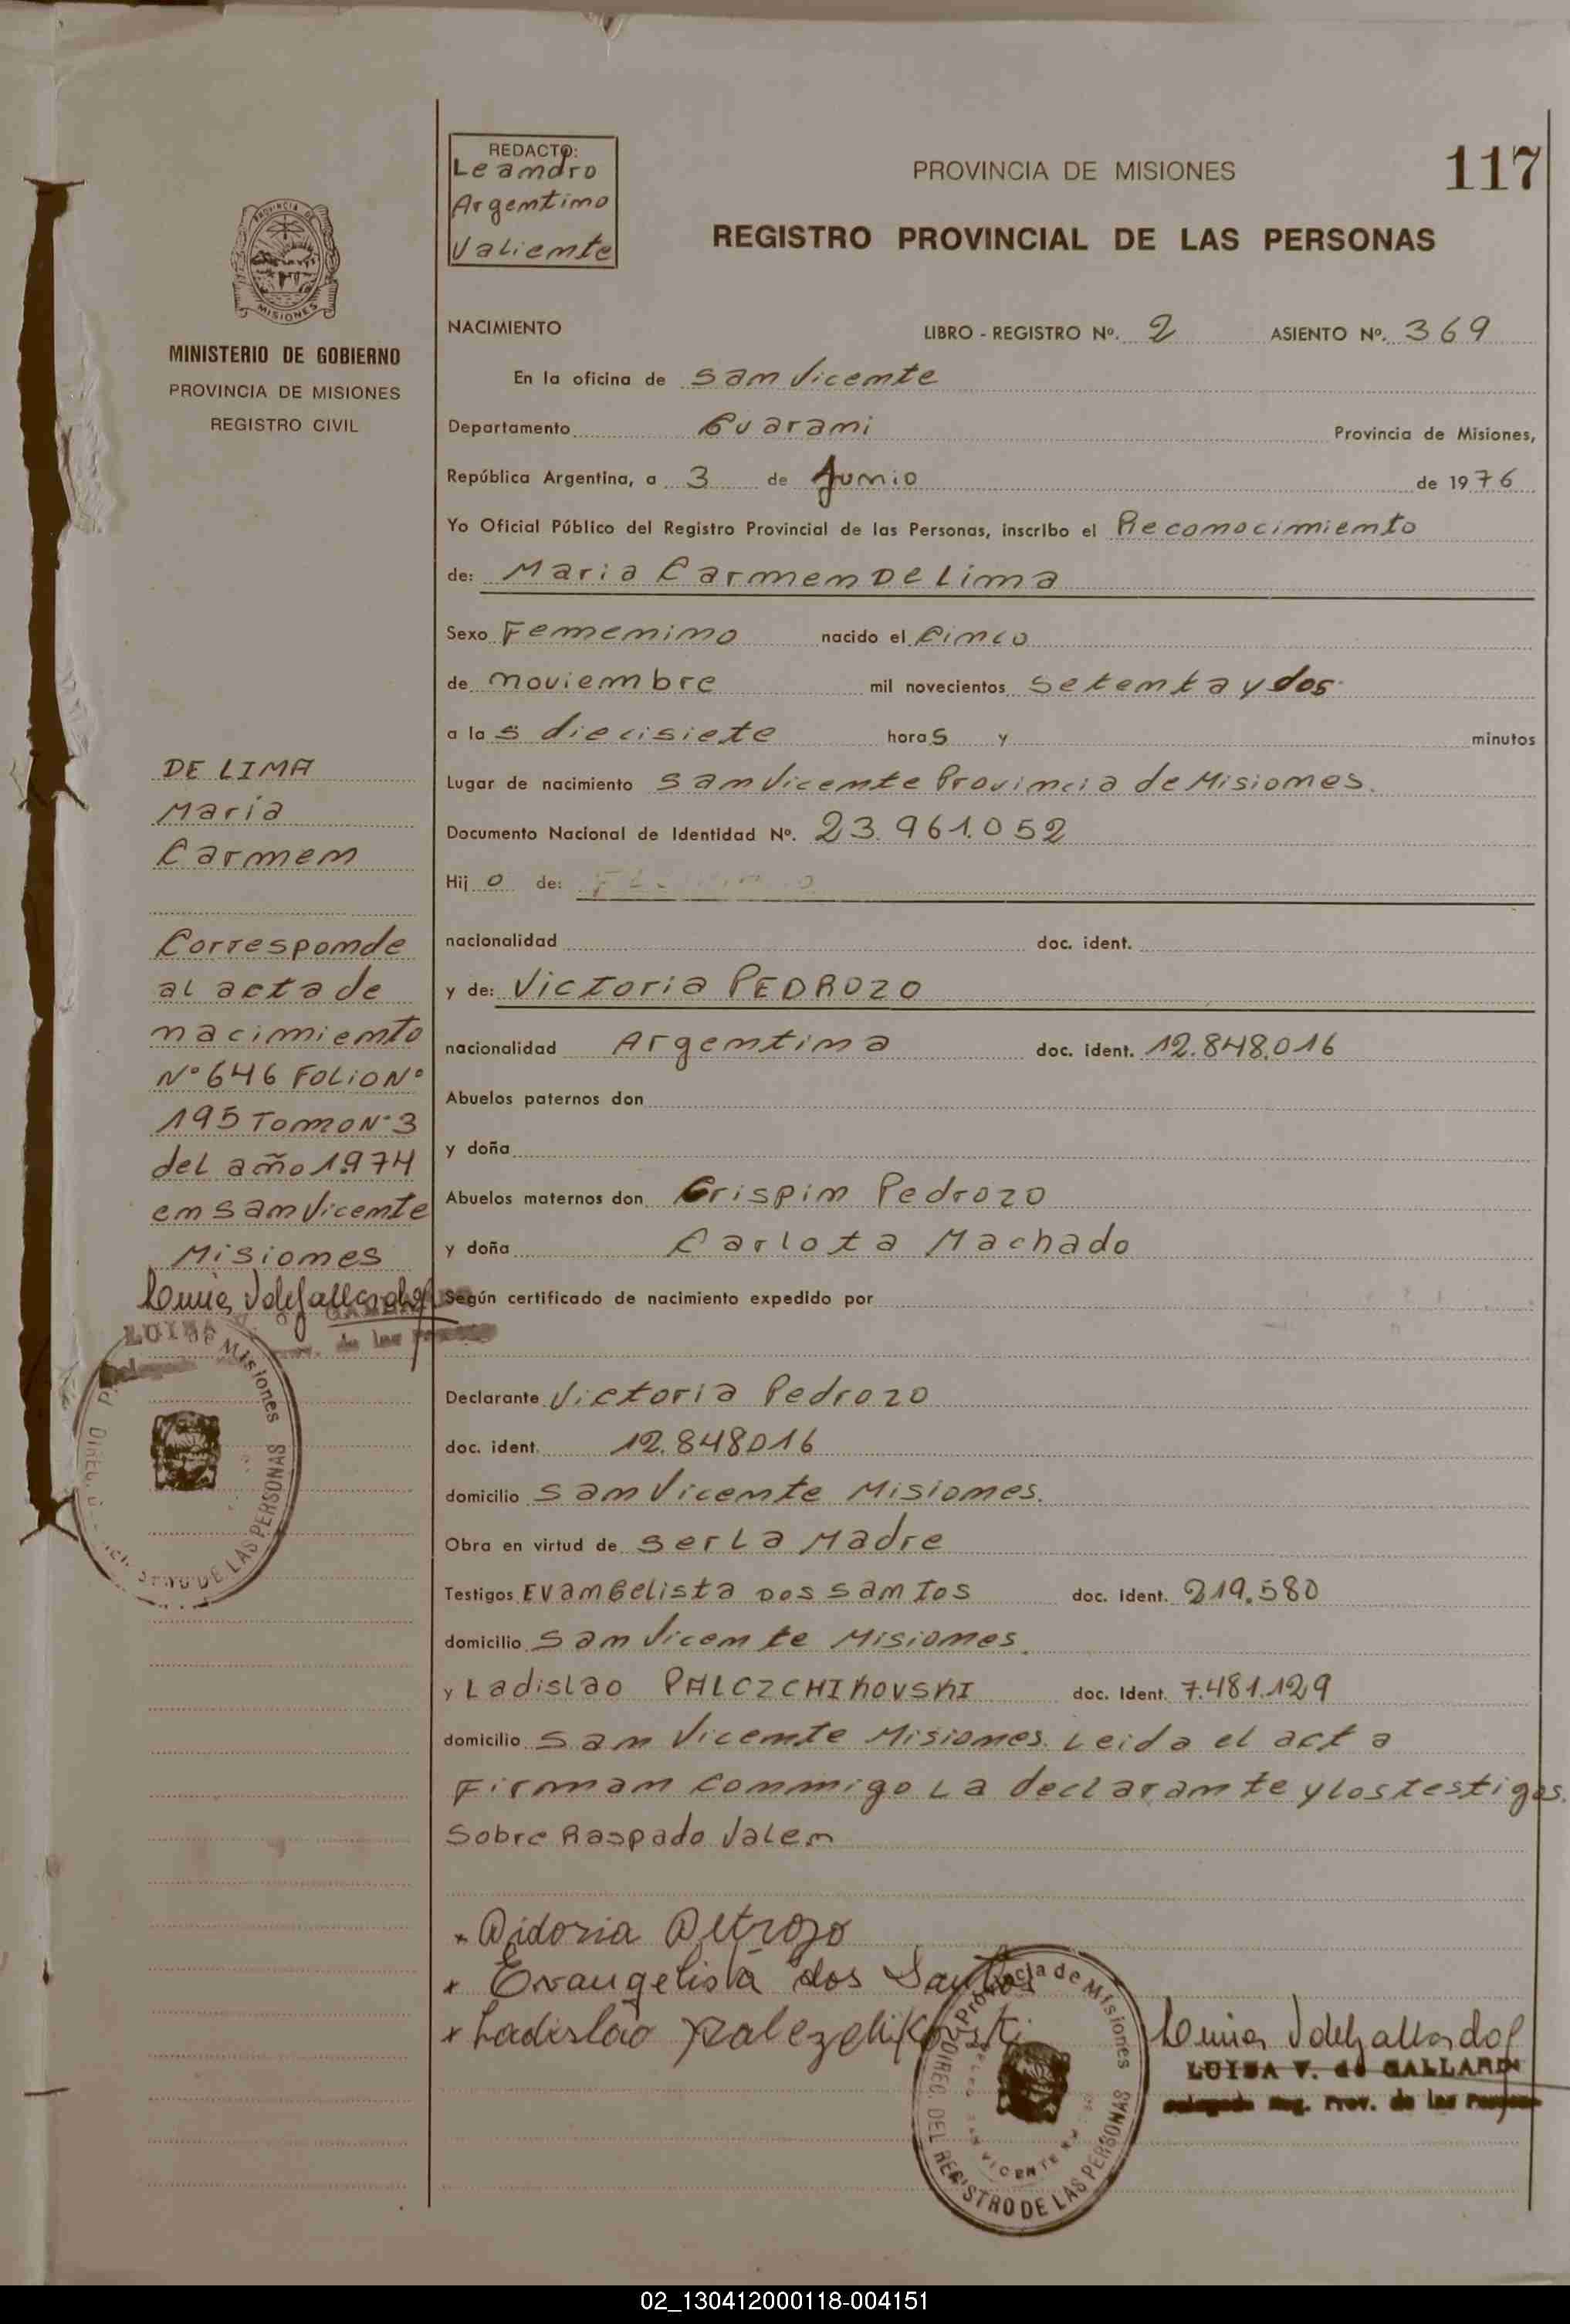 REDACTO:
Leandro
Argentino
Valiente
PROVINCIA DE MISIONES
117
REGISTRO PROVINCIAL DE LAS PERSONAS
PROVINCIA DE
MISIONES
MINISTERIO DE GOBIERNO
PROVINCIA DE MISIONES
REGISTRO CIVIL
NACIMIENTO LIBRO - REGISTRO Nº. 2 ASIENTO Nº. 369
En la oficina de San Vicente
Departamento Guarani Provincia de Misiones,
República Argentina, a 3 de Junio de 1976
Yo Oficial Público del Registro Provincial de las Personas, inscribo el Reconocimiento
de: Maria Carmen De Lima
Sexo Femenino nacido el Cinco
de noviembre mil novecientos setenta y dos
a las diecisiete horas y minutos
Lugar de nacimiento San Vicente Provincia de Misiones.
Documento Nacional de Identidad Nº. 23.961.052
Hijo de:
nacionalidad doc. ident.
y de: Victoria PEDROZO
nacionalidad Argentina doc. ident. 12.848.016
Abuelos paternos don
y doña
Abuelos maternos don Crispin Pedrozo
y doña Carlota Machado
Según certificado de nacimiento expedido por
Declarante Victoria Pedrozo
doc. ident. 12.848016
domicilio San Vicente Misiones.
Obra en virtud de ser La Madre
Testigos EVanGelista DOS SanTos doc. Ident. 219.580
domicilio San Vicente Misiones.
y Ladislao PALCZCHIKOVSKI doc. Ident. 7.481.129
domicilio San Vicente Misiones. Leida el acta
Firman conmigo La declarante y los testigos.
Sobre Raspado Valen
DE LIMA
Maria
Carmen
Corresponde
al acta de
nacimiento
Nº 646 FOLIO Nº
195 Tomo Nº 3
del año 1.974
en San Vicente
Misiones
LUISA
de las
de Misiones
DE LAS PERSONAS
x Evangelista dos Santos
x Ladislao
Provincia de Misiones
DIREC. DEL REGISTRO DE LAS PERSONAS
SAN VICENTE
LUISA V. de GALLARDO
Delegada Reg. Prov. de las Personas
02_130412000118-004151